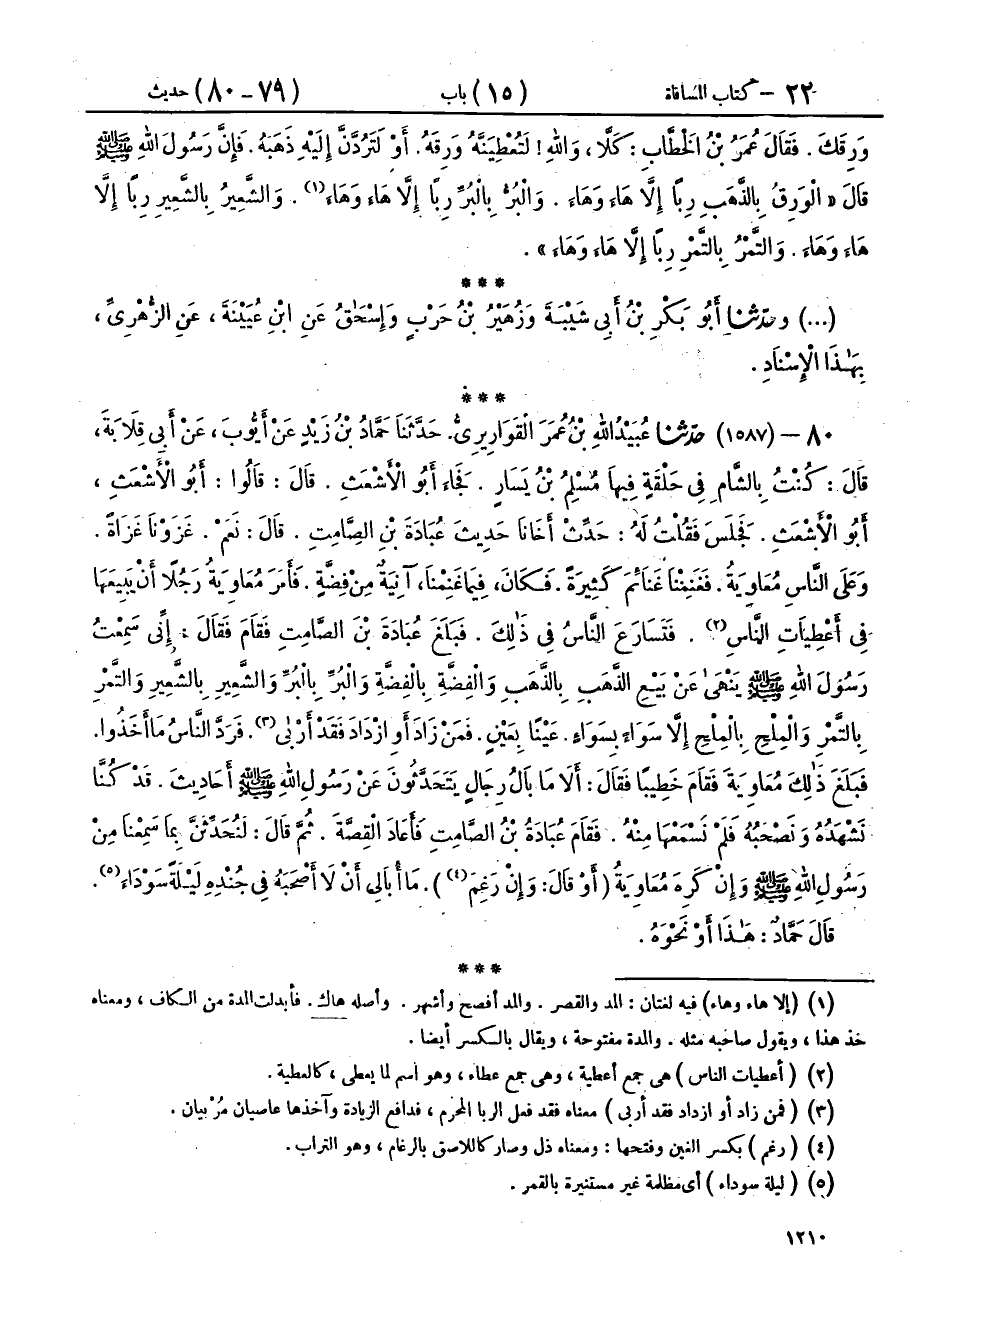 ٢٢ – كتاب المساقاة (١٥) باب (٧٩-٨٠) حديث
وَرِقَكَ . فَقَالَ عُمَرُ بْنُ الْخَطَّابِ : كَلَّا ، وَاللهِ ! لَتُعْطِيَنَّهُ وَرِقَهُ . أَوْ لَتَرُدَّنَّ إِلَيْهِ ذَهَبَهُ . فَإِنَّ رَسُولَ اللهِ ﷺ
قَالَ « الْوَرِقُ بِالذَّهَبِ رِبًا إِلَّا هَاءَ وَهَاءَ . وَالْبُرُّ بِالْبُرِّ رِبًا إِلَّا هَاءَ وَهَاءَ (١) . وَالشَّعِيرُ بِالشَّعِيرِ رِبًا إِلَّا
هَاءَ وَهَاءَ . وَالتَّمْرُ بِالتَّمْرِ رِبًا إِلَّا هَاءَ وَهَاءَ » .
***
(...) وحَدَّثَنَا أَبُو بَكْرِ بْنُ أَبِي شَيْبَةَ وَزُهَيْرُ بْنُ حَرْبٍ وَإِسْحَاقُ عَنِ ابْنِ عُيَيْنَةَ ، عَنِ الزُّهْرِيِّ ،
بِهَٰذَا الْإِسْنَادِ .
***
٨٠ – (١٥٨٧) حَدَّثَنَا عُبَيْدُ اللهِ بْنُ عُمَرَ الْقَوَارِيرِيُّ . حَدَّثَنَا حَمَّادُ بْنُ زَيْدٍ عَنْ أَيُّوبَ ، عَنْ أَبِي قِلَابَةَ ،
قَالَ : كُنْتُ بِالشَّامِ فِي حَلْقَةٍ فِيهَا مُسْلِمُ بْنُ يَسَارٍ . فَجَاءَ أَبُو الْأَشْعَثِ . قَالَ : قَالُوا : أَبُو الْأَشْعَثِ ،
أَبُو الْأَشْعَثِ . فَجَلَسَ فَقُلْتُ لَهُ : حَدِّثْ أَخَانَا حَدِيثَ عُبَادَةَ بْنِ الصَّامِتِ . قَالَ : نَعَمْ . غَزَوْنَا غَزَاةً .
وَعَلَى النَّاسِ مُعَاوِيَةُ . فَغَنِمْنَا غَنَائِمَ كَثِيرَةً . فَكَانَ ، فِيمَا غَنِمْنَا ، آنِيَةٌ مِنْ فِضَّةٍ . فَأَمَرَ مُعَاوِيَةُ رَجُلًا أَنْ يَبِيعَهَا
فِي أَعْطِيَاتِ النَّاسِ (٢) . فَتَسَارَعَ النَّاسُ فِي ذَٰلِكَ . فَبَلَغَ عُبَادَةَ بْنَ الصَّامِتِ فَقَامَ فَقَالَ : إِنِّي سَمِعْتُ
رَسُولَ اللهِ ﷺ يَنْهَىٰ عَنْ بَيْعِ الذَّهَبِ بِالذَّهَبِ وَالْفِضَّةِ بِالْفِضَّةِ وَالْبُرِّ بِالْبُرِّ وَالشَّعِيرِ بِالشَّعِيرِ وَالتَّمْرِ
بِالتَّمْرِ وَالْمِلْحِ بِالْمِلْحِ إِلَّا سَوَاءً بِسَوَاءٍ . عَيْنًا بِعَيْنٍ . فَمَنْ زَادَ أَوِ ازْدَادَ فَقَدْ أَرْبَىٰ (٣) . فَرَدَّ النَّاسُ مَا أَخَذُوا .
فَبَلَغَ ذَٰلِكَ مُعَاوِيَةَ فَقَامَ خَطِيبًا فَقَالَ : أَلَا مَا بَالُ رِجَالٍ يَتَحَدَّثُونَ عَنْ رَسُولِ اللهِ ﷺ أَحَادِيثَ . قَدْ كُنَّا
نَشْهَدُهُ وَنَصْحَبُهُ فَلَمْ نَسْمَعْهَا مِنْهُ . فَقَامَ عُبَادَةُ بْنُ الصَّامِتِ فَأَعَادَ الْقِصَّةَ . ثُمَّ قَالَ : لَنُحَدِّثَنَّ بِمَا سَمِعْنَا مِنْ
رَسُولِ اللهِ ﷺ وَإِنْ كَرِهَ مُعَاوِيَةُ ( أَوْ قَالَ : وَإِنْ رَغِمَ (٤) ) . مَا أُبَالِي أَنْ لَا أَصْحَبَهُ فِي جُنْدِهِ لَيْلَةً سَوْدَاءَ (٥) .
قَالَ حَمَّادٌ : هَٰذَا أَوْ نَحْوَهُ .
***
(١) (إلا هاء وهاء) فيه لغتان : المد والقصر . والمد أفصح وأشهر . وأصله هاك . فأبدلت المدة من الكاف ، ومعناه
خذ هذا ، ويقول صاحبه مثله . والمدة مفتوحة ، ويقال بالكسر أيضا .
(٢) ( أعطيات الناس ) هى جمع أعطية ، وهى جمع عطاء ، وهو اسم لما يعطى ، كالعطية .
(٣) ( فمن زاد أو ازداد فقد أربى ) معناه فقد فعل الربا المحرم ، فدافع الزيادة وآخذها عاصيان مُرْبيان .
(٤) ( رغم ) بكسر الغين وفتحها : ومعناه ذل وصار كاللاصق بالرغام ، وهو التراب .
(٥) ( ليلة سوداء ) أى مظلمة غير مستنيرة بالقمر .
١٢١٠